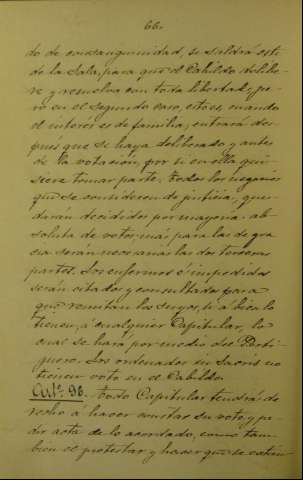 66.
do de consanguinidad, se saldrá este
de la Sala, para que el Cabildo delibe-
re y resuelva con toda libertad; pe-
ro en el segundo caso, esto es, cuando
el interés es de familia, entrará des-
pués que se haya deliberado y antes
de la votación, por si en ella qui-
siere tomar parte. Todos los negocios
que se consideren de justicia, que-
darán decididos por mayoría ab-
soluta de votos; mas para los de gra-
cia serán necesarias las dos terceras
partes. Los enfermos é impedidos
serán citados y consultados para
que remitan los suyos, si a bien lo
tienen, á cualquier Capitular, lo
cual se hará por medio del Perti-
guero. Los ordenados in Sacris no
tienen voto en el Cabildo.
Art.º 96. Todo Capitular tendrá de-
recho á hacer constar su voto, y pe-
dir acta de lo acordado, como tam-
bien el protestar y hacer que se estien-